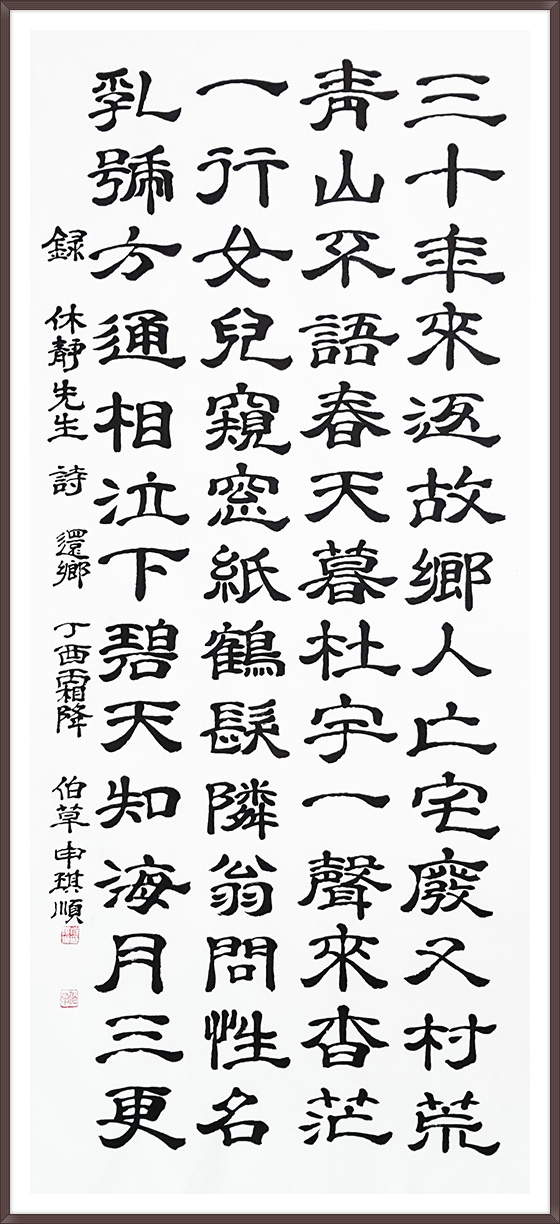 三十年來返故鄉人亡宅廢又村荒
青山不語春天暮杜宇一聲來杳茫
一行女兒窺窓紙鶴髮隣翁問性名
乳號方通相泣下碧天知海月三更
録 休靜先生 詩 還鄉 丁酉霜降 伯草 申琪順